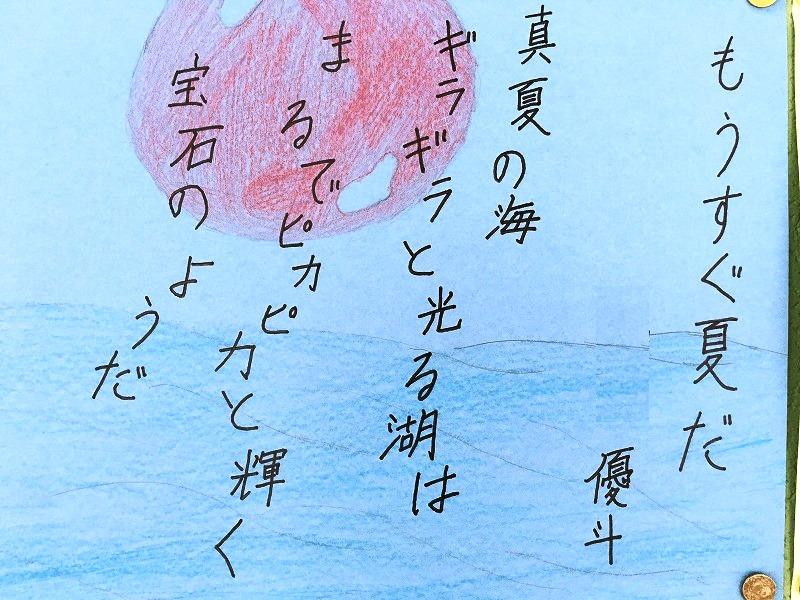 もうすぐ夏だ
優斗
真夏の海
ギラギラと光る湖は
まるでピカピカと輝く
宝石のようだ